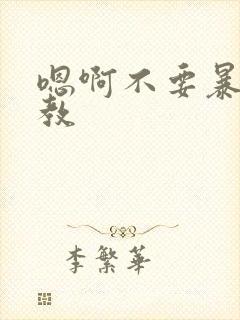 嗯啊不要暴
教
李繁华